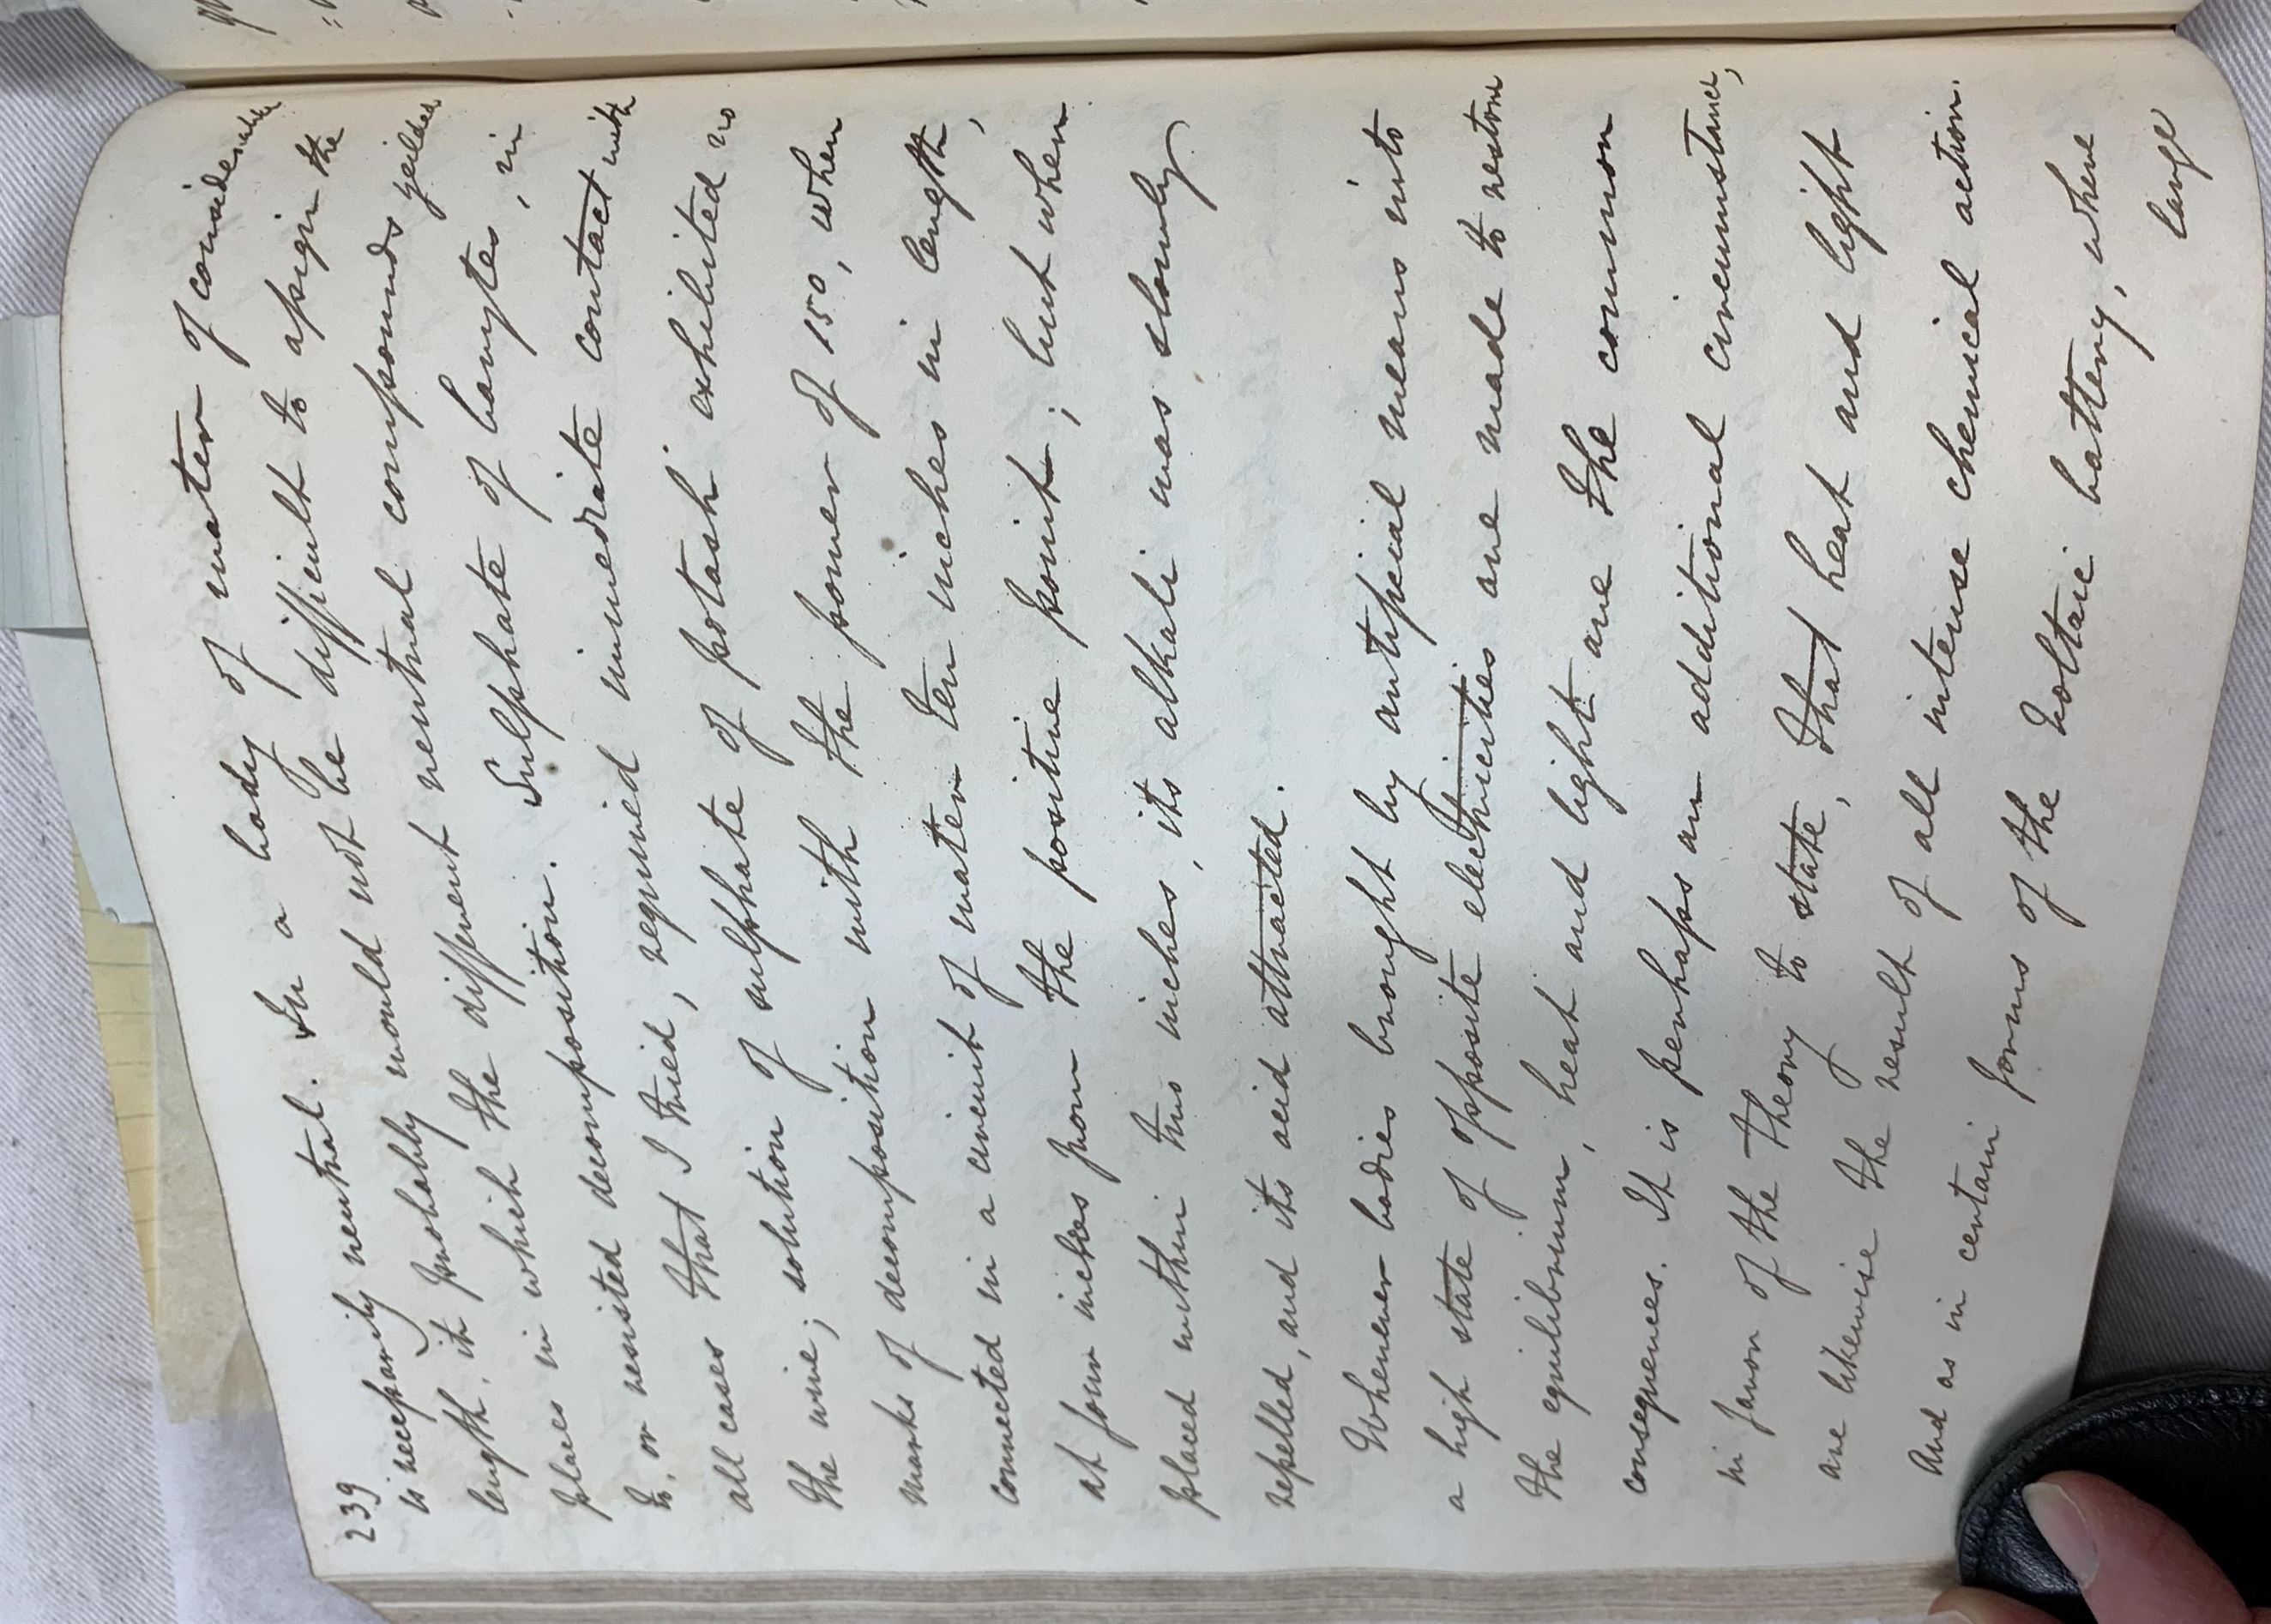 239
is necessarily neutral. In a body of water of considerable
length, it probably would not be difficult to assign the
places in which the different neutral compounds yeilded
to, or resisted decomposition. Sulphate of barytes, in
all cases that I tried, required immediate contact with
the wire; solution of sulphate of potash exhibited no
marks of decomposition with the power of 150, when
connected in a circuit of water ten inches in length,
at four inches from the positive point; but when
placed within two inches, its alkali was slowly
repelled, and its acid attracted.
Whenever bodies brought by artificial means into
a high state of opposite electricities are made to restore
the equilibrium, heat and light are the common
consequences. It is perhaps an additional circumstance,
in favor of the theory to state, that heat and light
are likewise the result of all intense chemical action.
And as in certain forms of the Voltaic battery, where
large